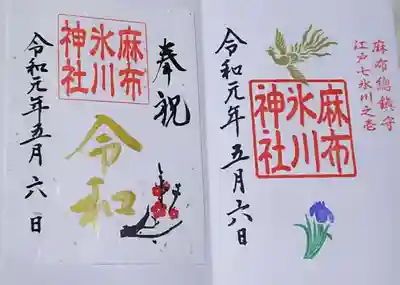 奉祝
麻布
氷川
神社
令和
令和元年五月六日
麻布總鎮守
江戸七氷川之壱
麻布
氷川
神社
令和元年五月六日